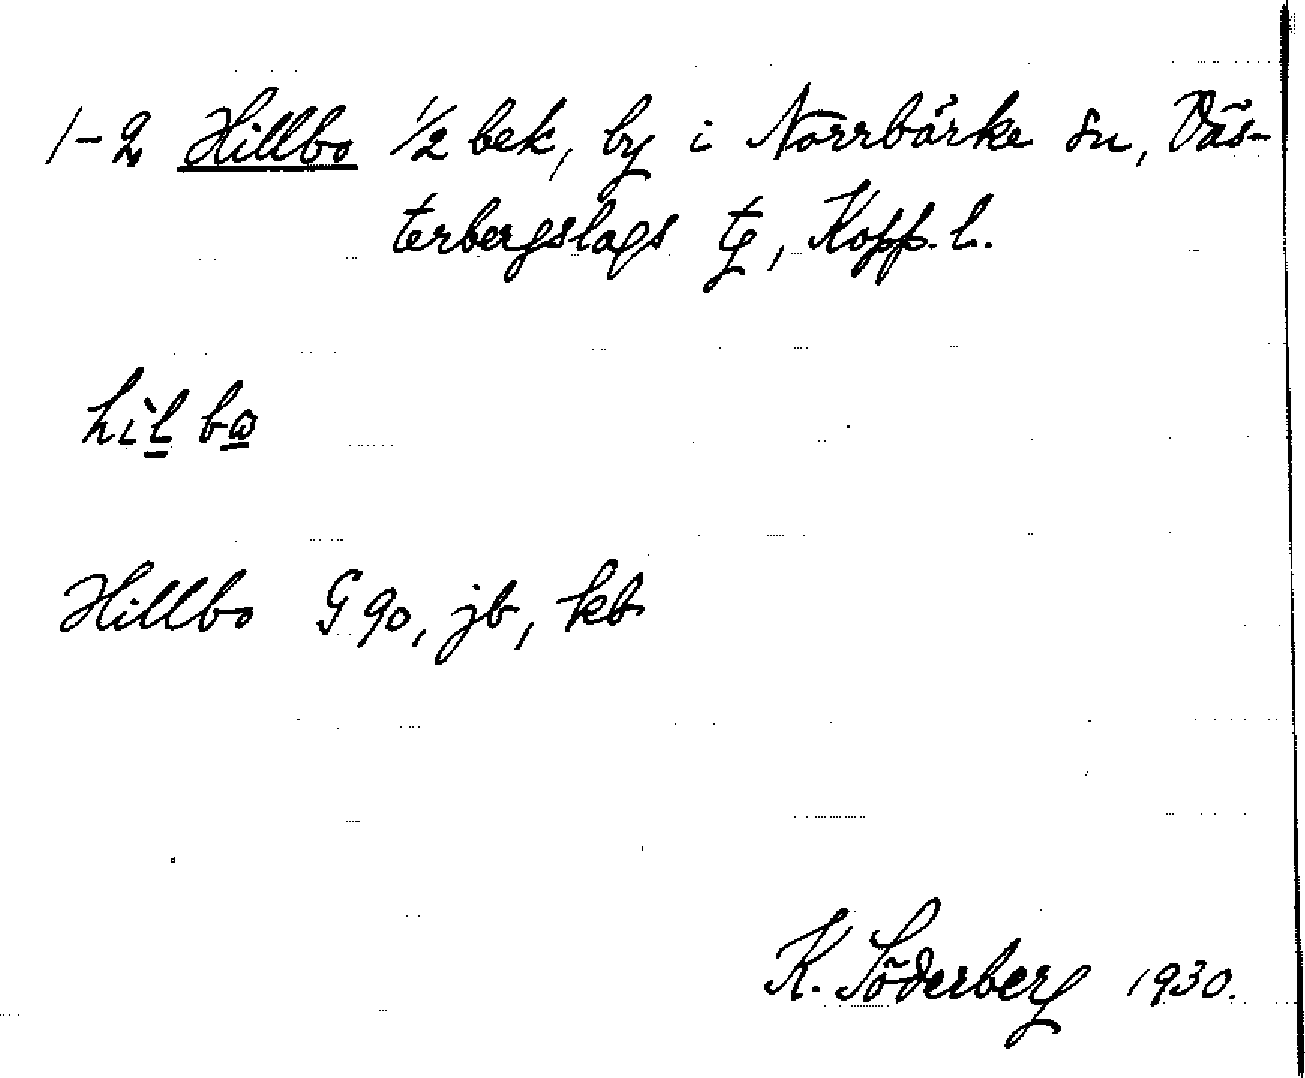 1-2 Hillbo 1/2 bek, by i Norrbärke sn, Väs-
terbergslags tg, Kopp. l.
hìl bω
Hillbo G 90, jb, kb
K. Söderberg 1930.